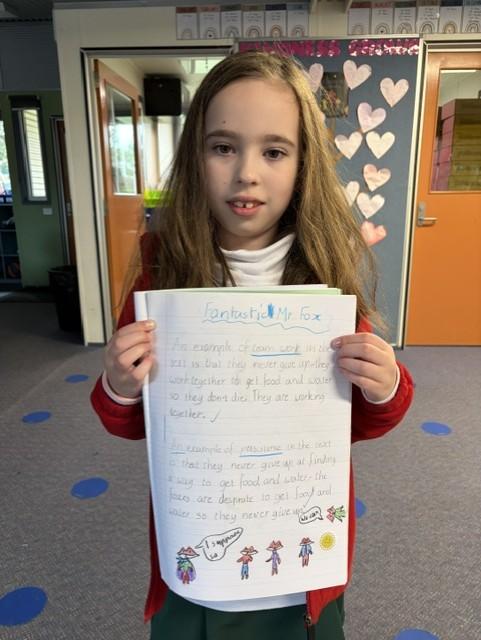 KINDNESS
Fantastic Mr Fox
An example of team work in the
text is that they never give up-they
work together to get food and water
so they don't die. They are working
together.
An example of persistance in the text
is that they never give up at finding
a way to get food and water-the
foxes are desprate to get food and
water so they never give up.
we can
I suppose
so